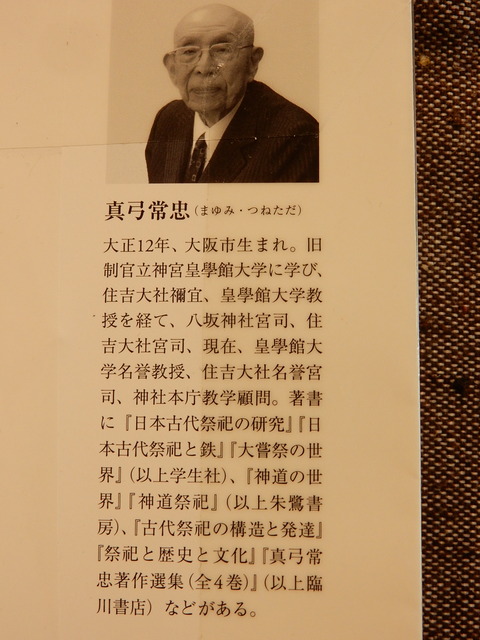 真弓常忠(まゆみ・つねただ)
大正12年、大阪市生まれ。旧
制官立神宮皇學館大学に学び、
住吉大社禰宜、皇學館大学教
授を経て、八坂神社宮司、住
吉大社宮司、現在、皇學館大
学名誉教授、住吉大社名誉宮
司、神社本庁教学顧問。著書
に『日本古代祭祀の研究』『日
本古代祭祀と鉄』『大嘗祭の世
界』(以上学生社)、『神道の世
界』『神道祭祀』(以上朱鷺書
房)、『古代祭祀の構造と発達』
『祭祀と歴史と文化』『真弓常
忠著作選集(全4巻)』(以上臨
川書店)などがある。